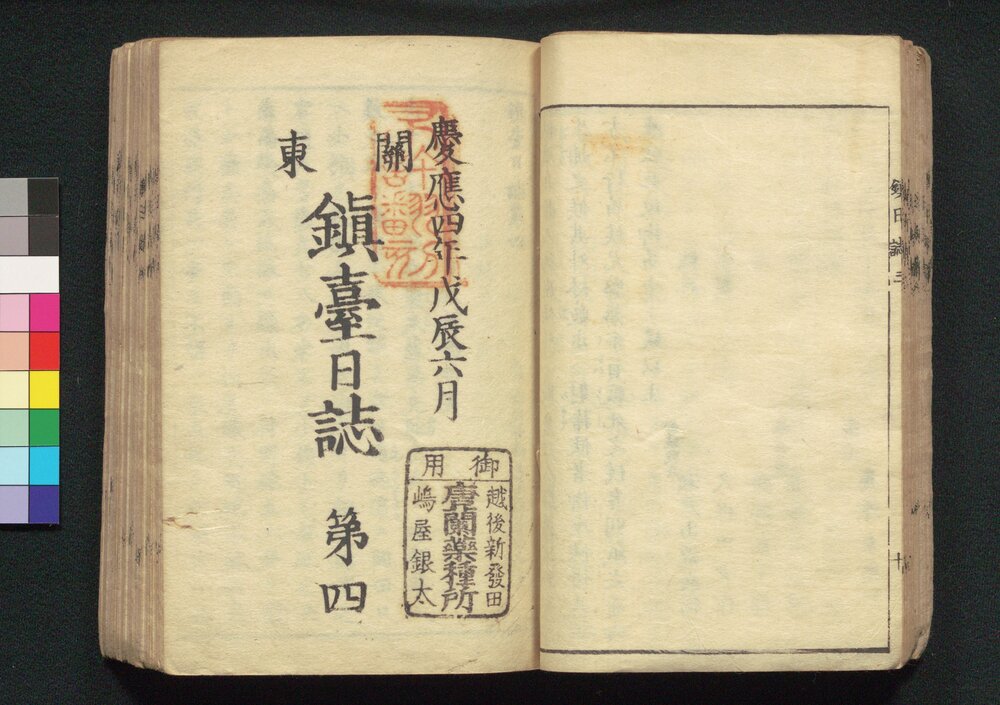 鎮日誌三
十
慶應四年戊辰六月
關東
鎭臺日誌 第四
御用
越後新發田
唐蘭藥種所
嶋屋銀太